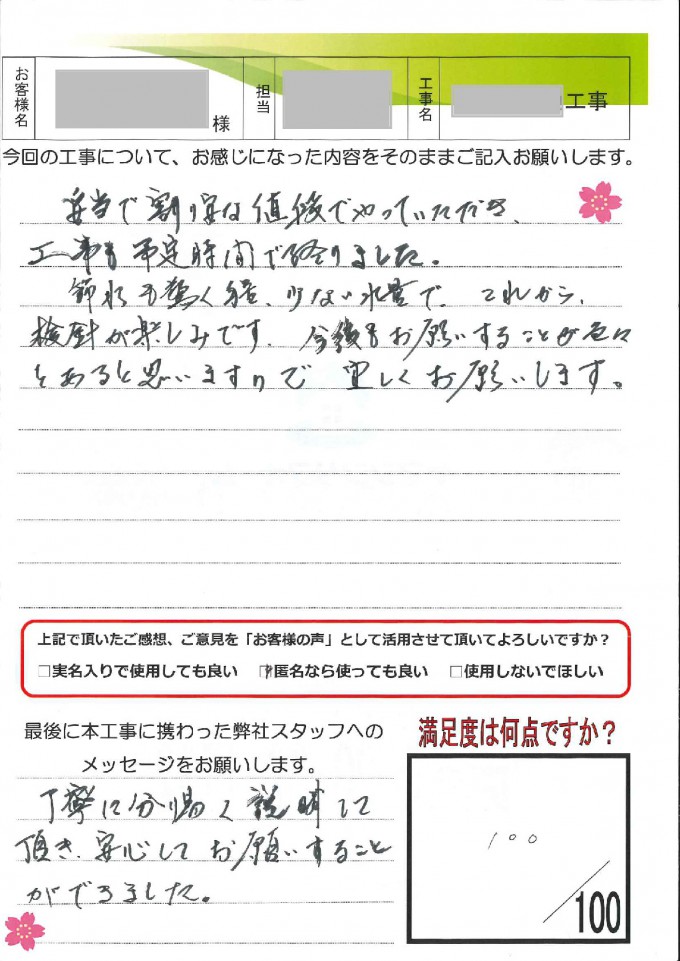 お客様名
様
担当
工事名
工事
今回の工事について、お感じになった内容をそのままご記入お願いします。
弁当で割り安な値段でやっていただき、
工事も予定時間で終りました。
節水も驚く程、少ない水量で、これから、
検針が楽しみです。今後もお願いすることが色々
とあると思いますので宜しくお願いします。
上記で頂いたご感想、ご意見を「お客様の声」として活用させて頂いてよろしいですか？
□実名入りで使用しても良い □匿名なら使っても良い □使用しないでほしい
最後に本工事に携わった弊社スタッフへの
メッセージをお願いします。
丁寧に分り易く説明して
頂き、安心してお願いすること
ができました。
満足度は何点ですか？
100
/100